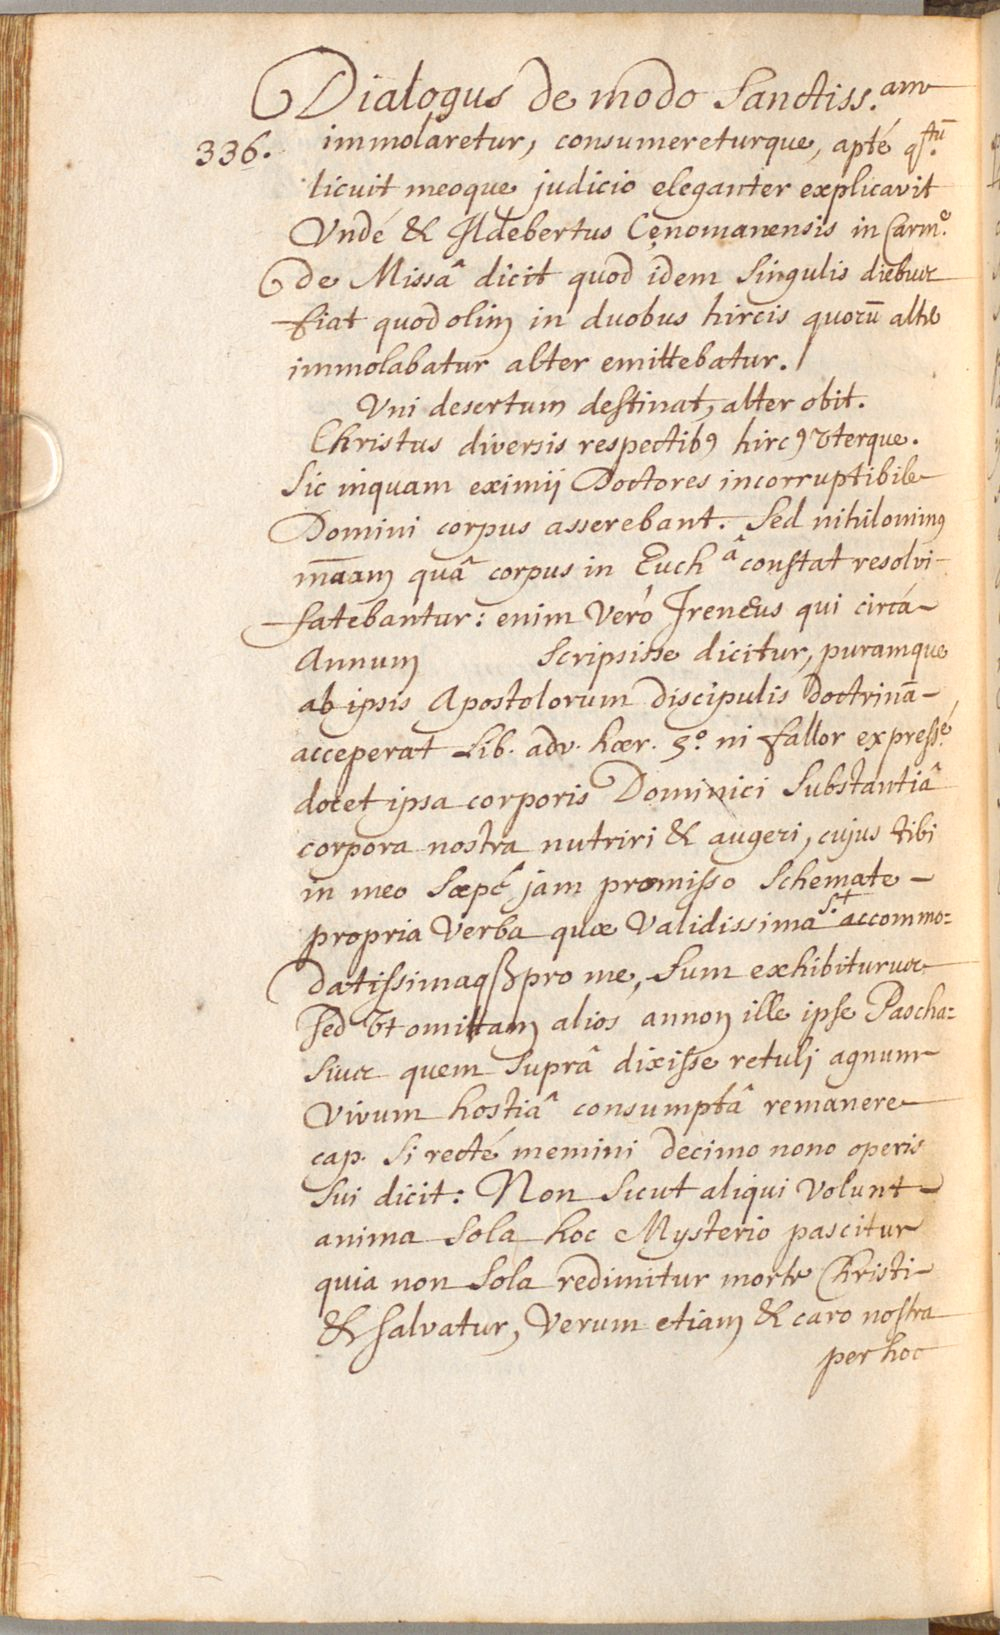 Dialogus de modo Sanctiss.am
336. immolaretur, consumereturque, apté qs.tū
licuit meoque judicio eleganter explicavit
Vndé & Ildebertus Cenomanensis in Carm.e
de Missâ dicit quod idem singulis diebus
fiat quod olim in duobus hircis quorū alter
immolabatur alter emittebatur.
Vni desertum destinat, alter obit.
Christus diversis respectibꝰ hircꝰ vterque.
Sic inquam eximij Doctores incorruptibile
Domini corpus asserebant. Sed nihilominꝰ
māam quâ corpus in Euch.â constat resolvi
fatebantur: enim veró Ireneus qui circá
Annum scripsisse dicitur, puramque
ab ipsis Apostolorum discipulis Doctrinā
acceperat Lib. adv. hær. 5.º ni fallor expressé
docet ipsa corporis Dominici Substantiâ
corpora nostra nutriri & augeri, cujus tibi
in meo sæpé jam promisso Schemate
propria verba quæ validissima S.t accommo=
datissimaqȝ pro me, sum exhibiturus
sed vt omittam alios annon ille ipse Pascha=
sius quem suprâ dixisse retuli agnum
vivum hostiâ consumptâ remanere
cap. si recté memini decimo nono operis
sui dicit: Non sicut aliqui volunt
anima sola hoc Mysterio pascitur
quia non sola redimitur morte Christi
& salvatur, verum etiam & caro nostra
per hoc